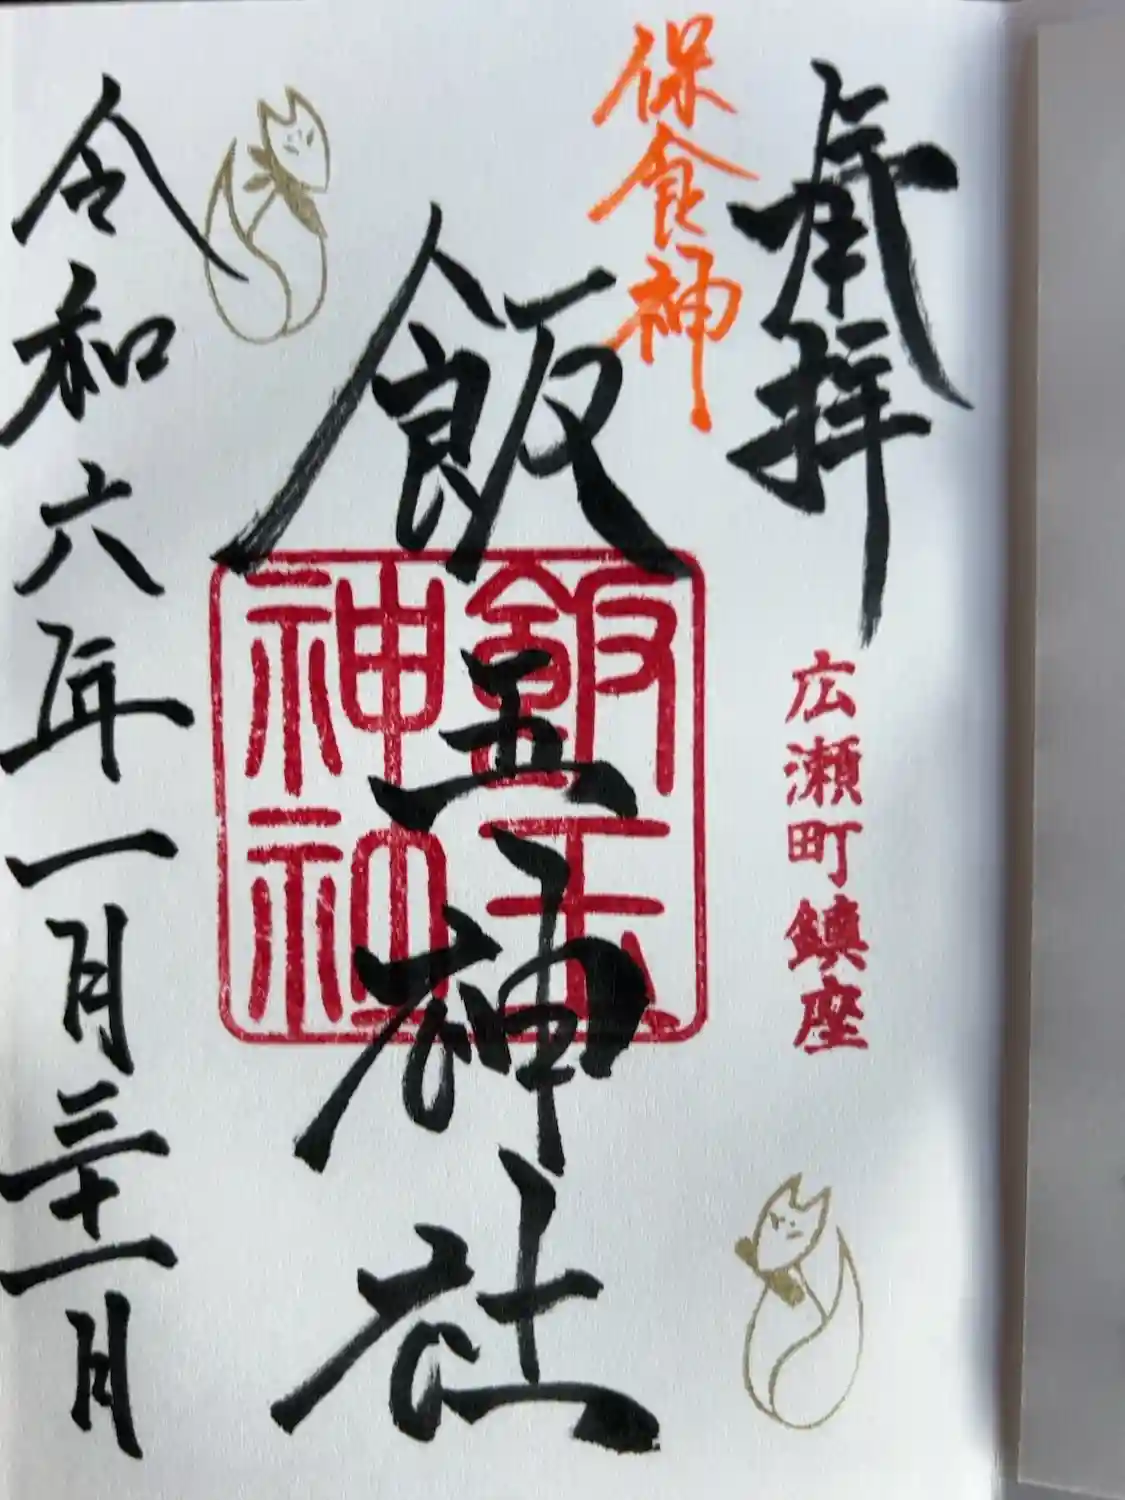 奉拝
広瀬町鎮座
保食神
飯玉神社
令和六年一月三十一日